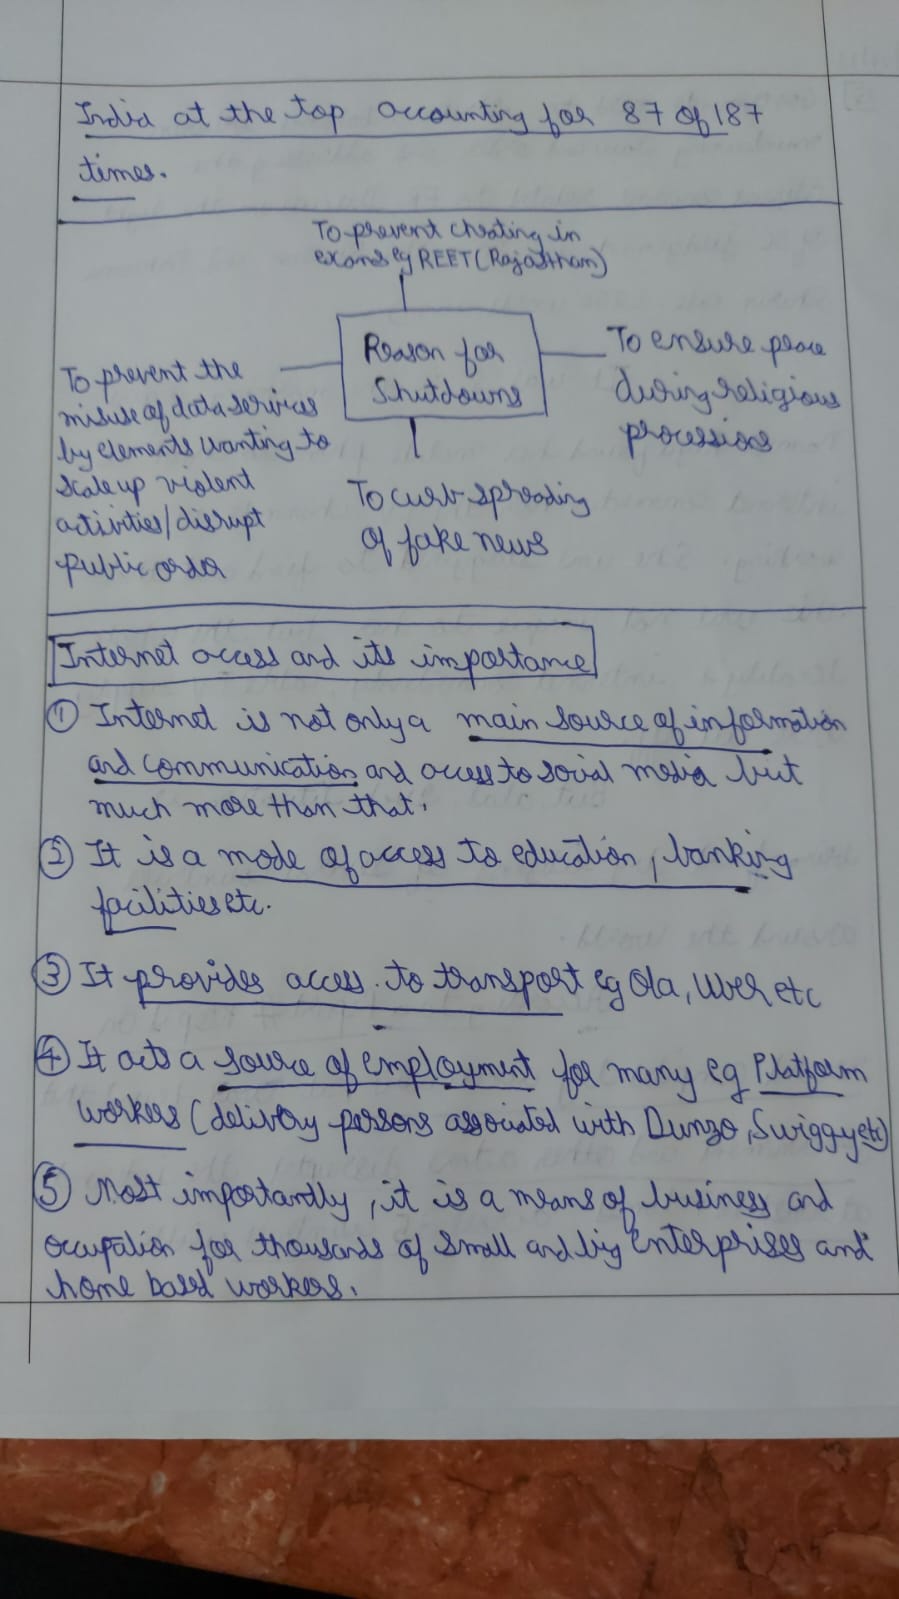 India at the top accounting for 87 of 187
times.
To prevent cheating in
exams eg REET (Rajasthan)
Reason for
Shutdowns
To ensure peace
during religious
processions
To prevent the
misuse of data services
by elements wanting to
scale up violent
activities/disrupt
public order
To curb spreading
of fake news
Internet access and its importance
① Internet is not only a main source of information
and communication and access to social media but
much more than that.
② It is a mode of access to education, banking
facilities etc.
③ It provides access to transport eg Ola, Uber etc
④ It acts a source of employment for many eg Platform
workers (delivery persons associated with Dunzo, Swiggy etc)
⑤ Most importantly, it is a means of business and
occupation for thousands of small and big enterprises and
home based workers.